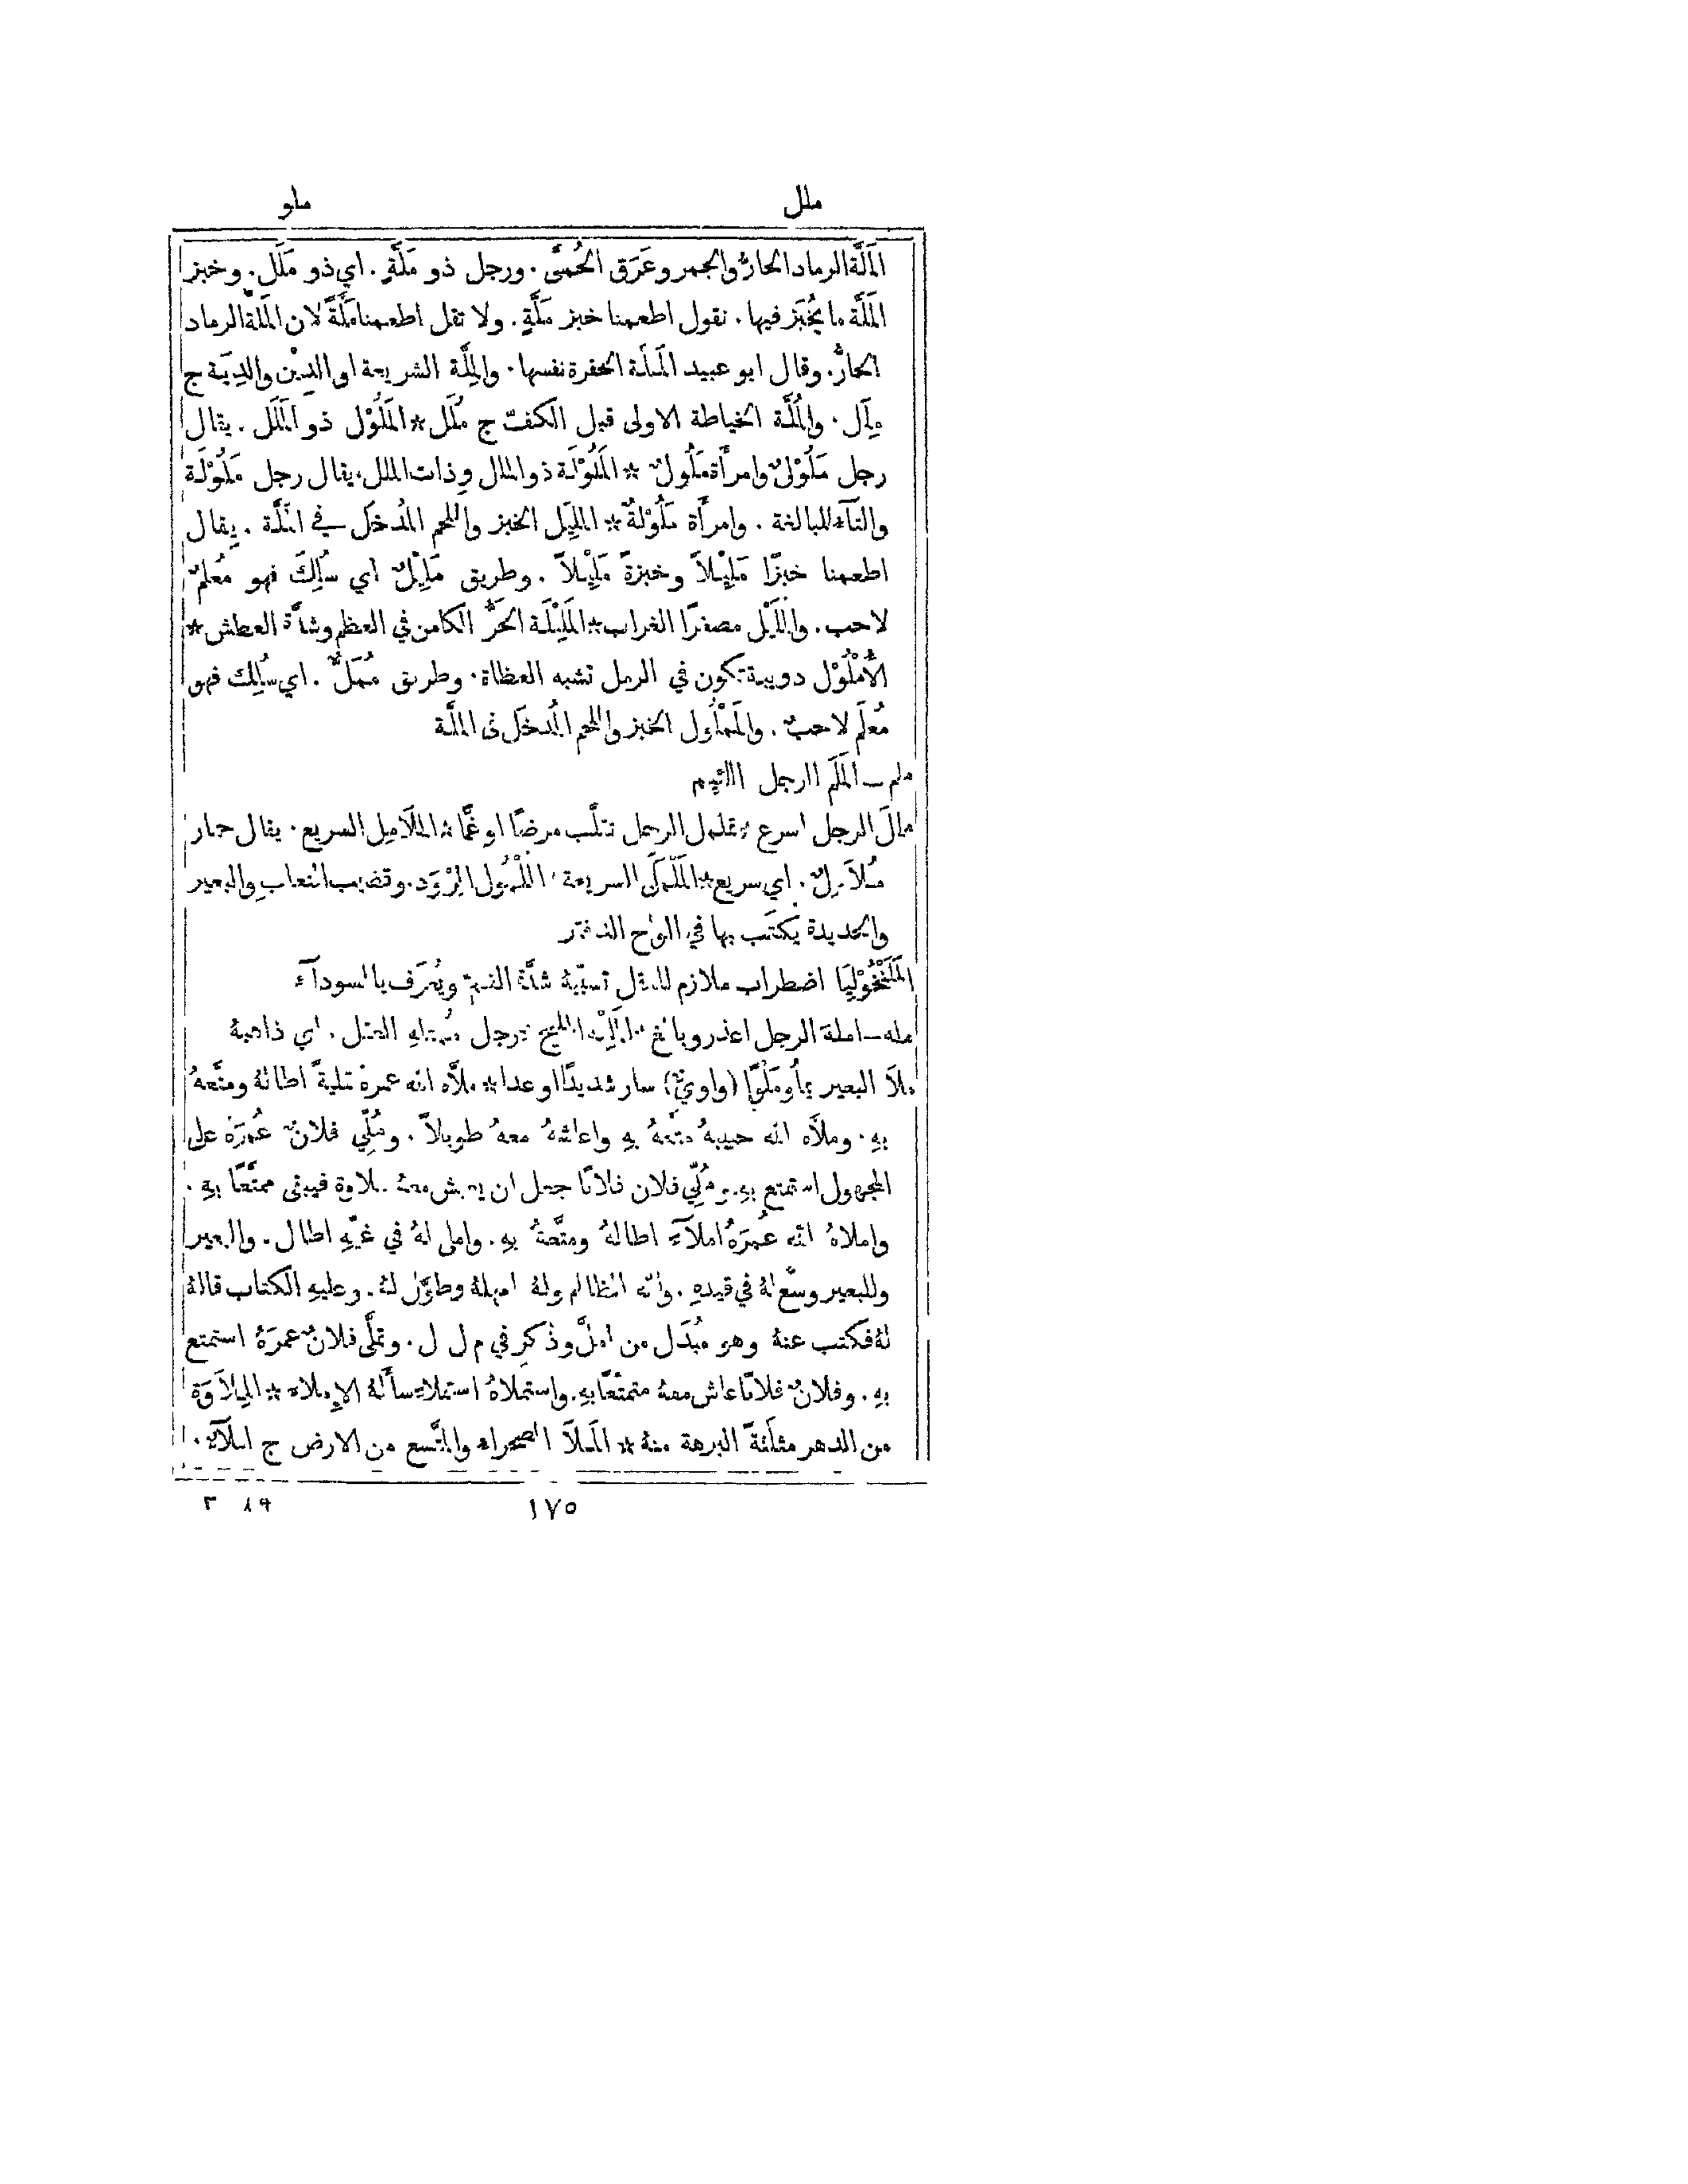 ملل ملو
المَلَّة الرماد الحارُّ والجمر وعَرَق الحُمَّى. ورجل ذو مَلَّةٍ. اي ذو مَلَلٍ. وخبز
المَلَّة ما يُخْبَز فيها. نقول اطعمنا خبز مَلَّةٍ. ولا تقل اطعمنا مَلَّةً لان المَلَّة الرماد
الحارُّ. وقال ابو عبيد المَلَّة الحفرة نفسها. والمِلَّة الشريعة او الدِيْن والدِيَة ج
مِلَل. والمُلَّة الخياطة الاولى قبل الكفّ ج مُلَل * المَلُوْل ذو المَلَل. يقال
رجل مَلُوْلٌ وامرأة مَلُولٌ * المَلُوْلَة ذو الملل وذات الملل. يقال رجل مَلُوْلَة
والتآء للبالغة. وامرأة مَلُوْلةٌ * المليَل الخبز واللحم المُدخَل في المَلَّة. يقال
اطعمنا خبزًا مَلِيْلاً وخبزةً مَلِيْلاً. وطريق مَلِيْلٌ اي سُلِكَ فهو مُعلَمٌ
لاحب. والمُلَيْل مصغرًا الغراب * المَلِيْلَة الحَرُّ الكامن في العظم وشدَّة العطش *
الأُمْلُوْل دويبة تكون في الرمل تشبه العظاة. وطريق مُمَلٌّ. اي سُلِك فهو
مُعلَم لاحبٌ. والمَمْلُول الخبز واللحم المُدخَل في الملَّة
ملم ـ المَلَم الرجل اللئيم
الرجل اسرع الرجل مرضًا او غمًّا * المُلاَمِل السريع. يقال حمار
مُلاَمِلٌ. اي سريع * السريعة * المُلْمُول المِرْوَد. وقضيب الثعلب والبعير
والحديدة يُكتَب بها في الواح الدفتر
المَلَنْخُوْلِيَا اضطراب ملازم للعقل تسبّبهُ شدَّة ويُعرَف بالسودآء
مله ـ امله الرجل اعذر وبالغ * المليح * رجل العقل. اي ذاهبهُ
ملاَ البعير ومَلْوًا (واويٌّ) سار شديدًا او عدا * ملاَّه الله عمرهُ تمليةً اطالهُ ومتَّعهُ
بهِ. وملاَّه الله حبيبهُ متَّعهُ بهِ واعاشهُ معهُ طويلاً. ومُلِّي فلانٌ عُمرَهُ على
المجهول استمتع بهِ. ومُلِّي فلان فلانًا جعل ان يعيش معهُ ملاوة فيبقى ممتَّعًا بهِ.
واملاهُ الله عُمرَهُ املآءً اطالهُ ومتَّعهُ بهِ. واملى لهُ في غيّهِ اطال. والبعير
وللبعير وسَّع لهُ في قيدهِ. والله الظالم ولهُ امهلهُ وطوَّل لهُ. وعليهِ الكتاب قالهُ
لهُ فكتب عنهُ وهو مُبدَل من املَّ وذُكر في م ل ل. وتملَّى فلانٌ عمرَهُ استمتع
بهِ. وفلانٌ فلانًا عاش معهُ متمتّعًا بهِ. واستملاهُ استملاءً سألهُ الإملاء * المِلاَوَة
من الدهر مثلَّثةً البرهة منهُ * المَلاَ الصحراء والمتَّسع من الارض ج املآء.
١٧٥ ٨٩ ٢